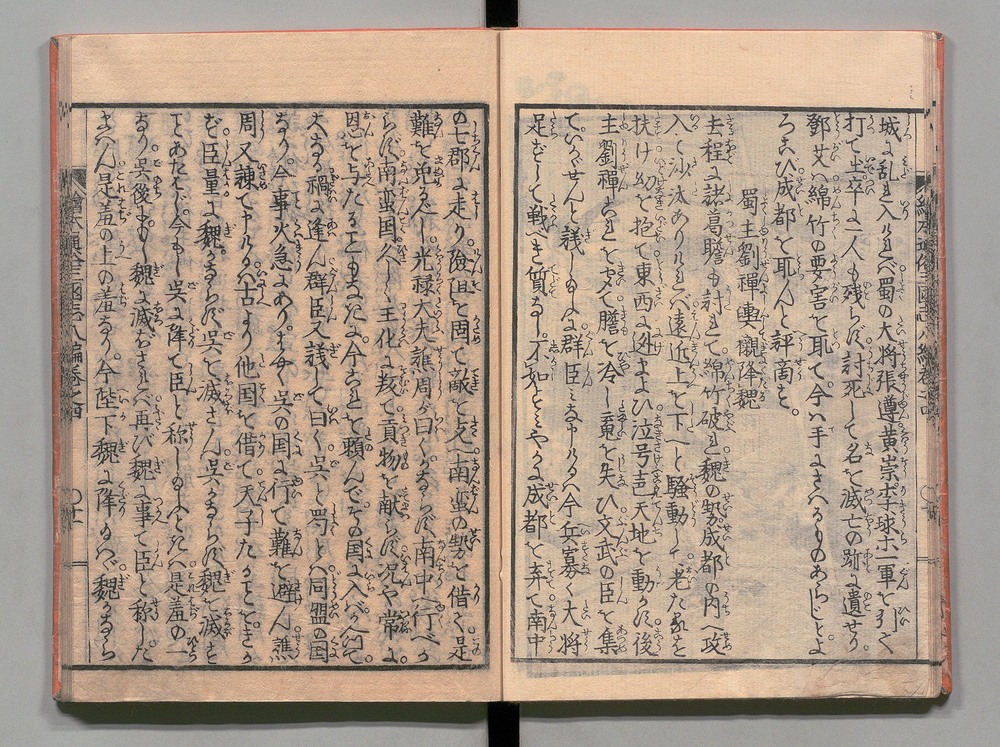 城に乱れ入ければ蜀の大将張遵黄崇李球ホ一軍を引て
打て士卒に一人も残らば討死して名を滅亡の弥に遺せり
鄧艾ハ綿竹の要害を取て今ハ手にさへるものあらじとよ
ろこび成都を取んと評商と。
蜀主劉禪輿櫬降魏
去程に諸葛瞻も討れて綿竹破れ魏の勢成都の内へ攻
入と沙汰ありければ遠近上を下へと騒動して老たるを
扶け幼を抱て東西に逃まよひ泣号声天地を動かし後
主劉禪これをきゝて膽を冷し魂を失ひ文武の臣を集
ていかゞせんと議しけるに群臣ミな申けるハ今兵寡く大将
足ずして戦べき質なし不如とミやかに成都を弃て南中
の七郡に走り險阻を固て敵を支へ南蛮の勢を借て是
難を免るべし光禄大夫譙周が曰くしからば南中へ行べか
らば南蛮国久しく王化に叛て貢物を献らば况や常に
恩を与たることもなし今これを頼んでその国に入バ必ず
大なる禍に逢ん群臣又議して曰く呉と蜀とハ同盟の国
なり今事火急にあり早く呉の国に行て難を避ん譙
周又諫て申けるハ古より他国を借て天子たることをきか
ば臣量に魏ハよく呉を滅さん呉ハよく魏を滅こと
あたはじ今もし呉に降て臣と称し玉ふときハ是羞の一
なり呉後に魏に滅されば再び魏に事て臣と称した
まへん是羞の上の羞なり今陛下魏に降玉ハゞ魏かならら
繪本通俗三國志八編巻之四
〇十一